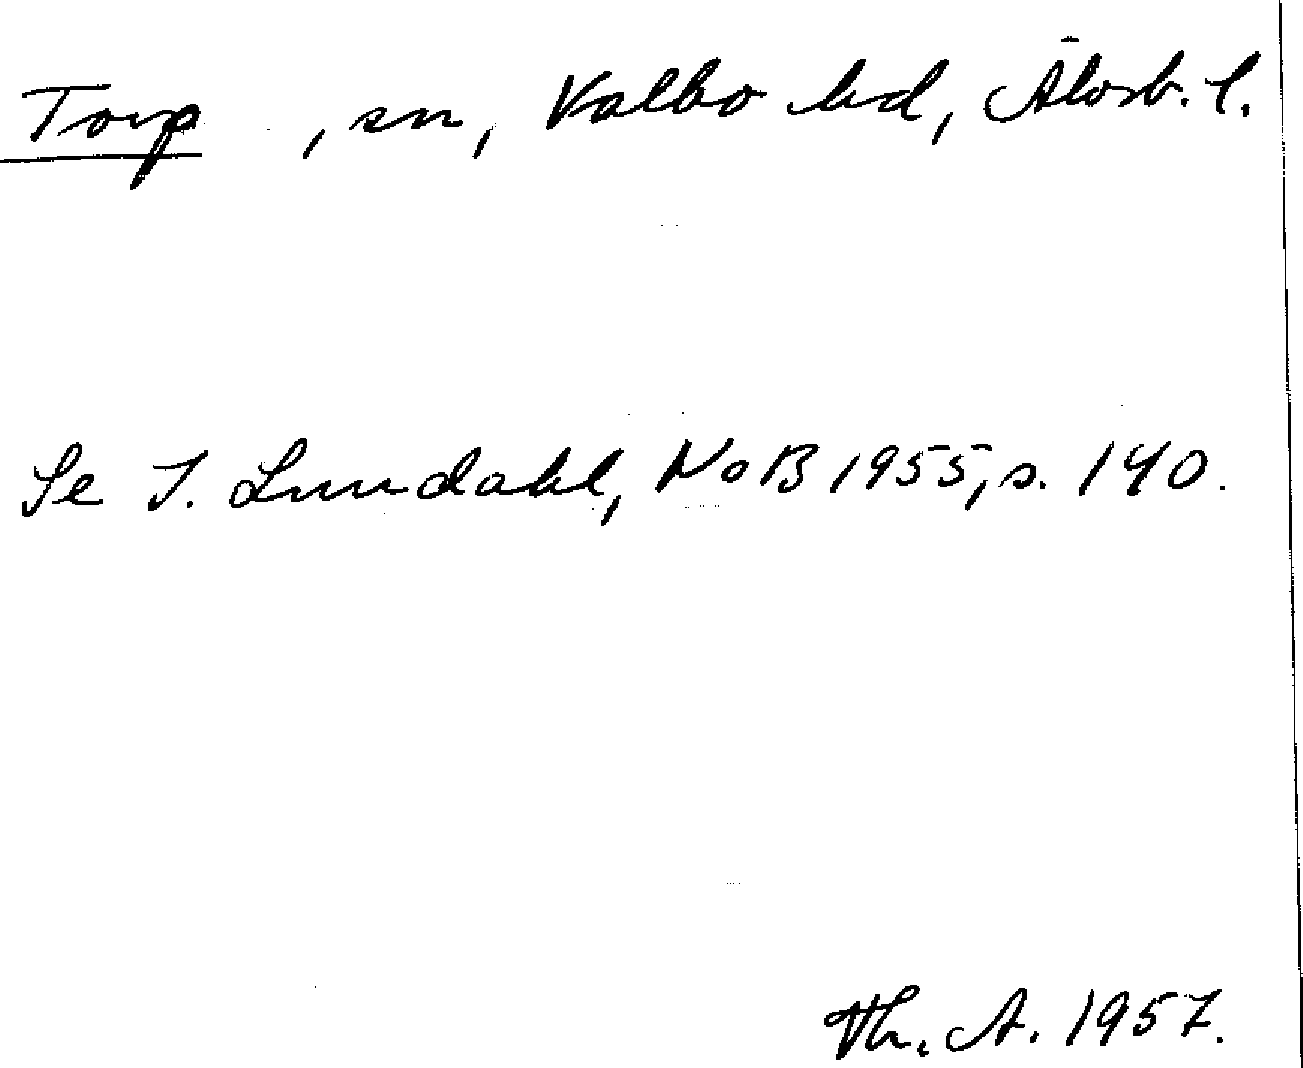 Torp , sn, Valbo hd, Älvsb. l.
Se I. Lundahl, NoB 1955, s. 140.
Th. A. 1957.